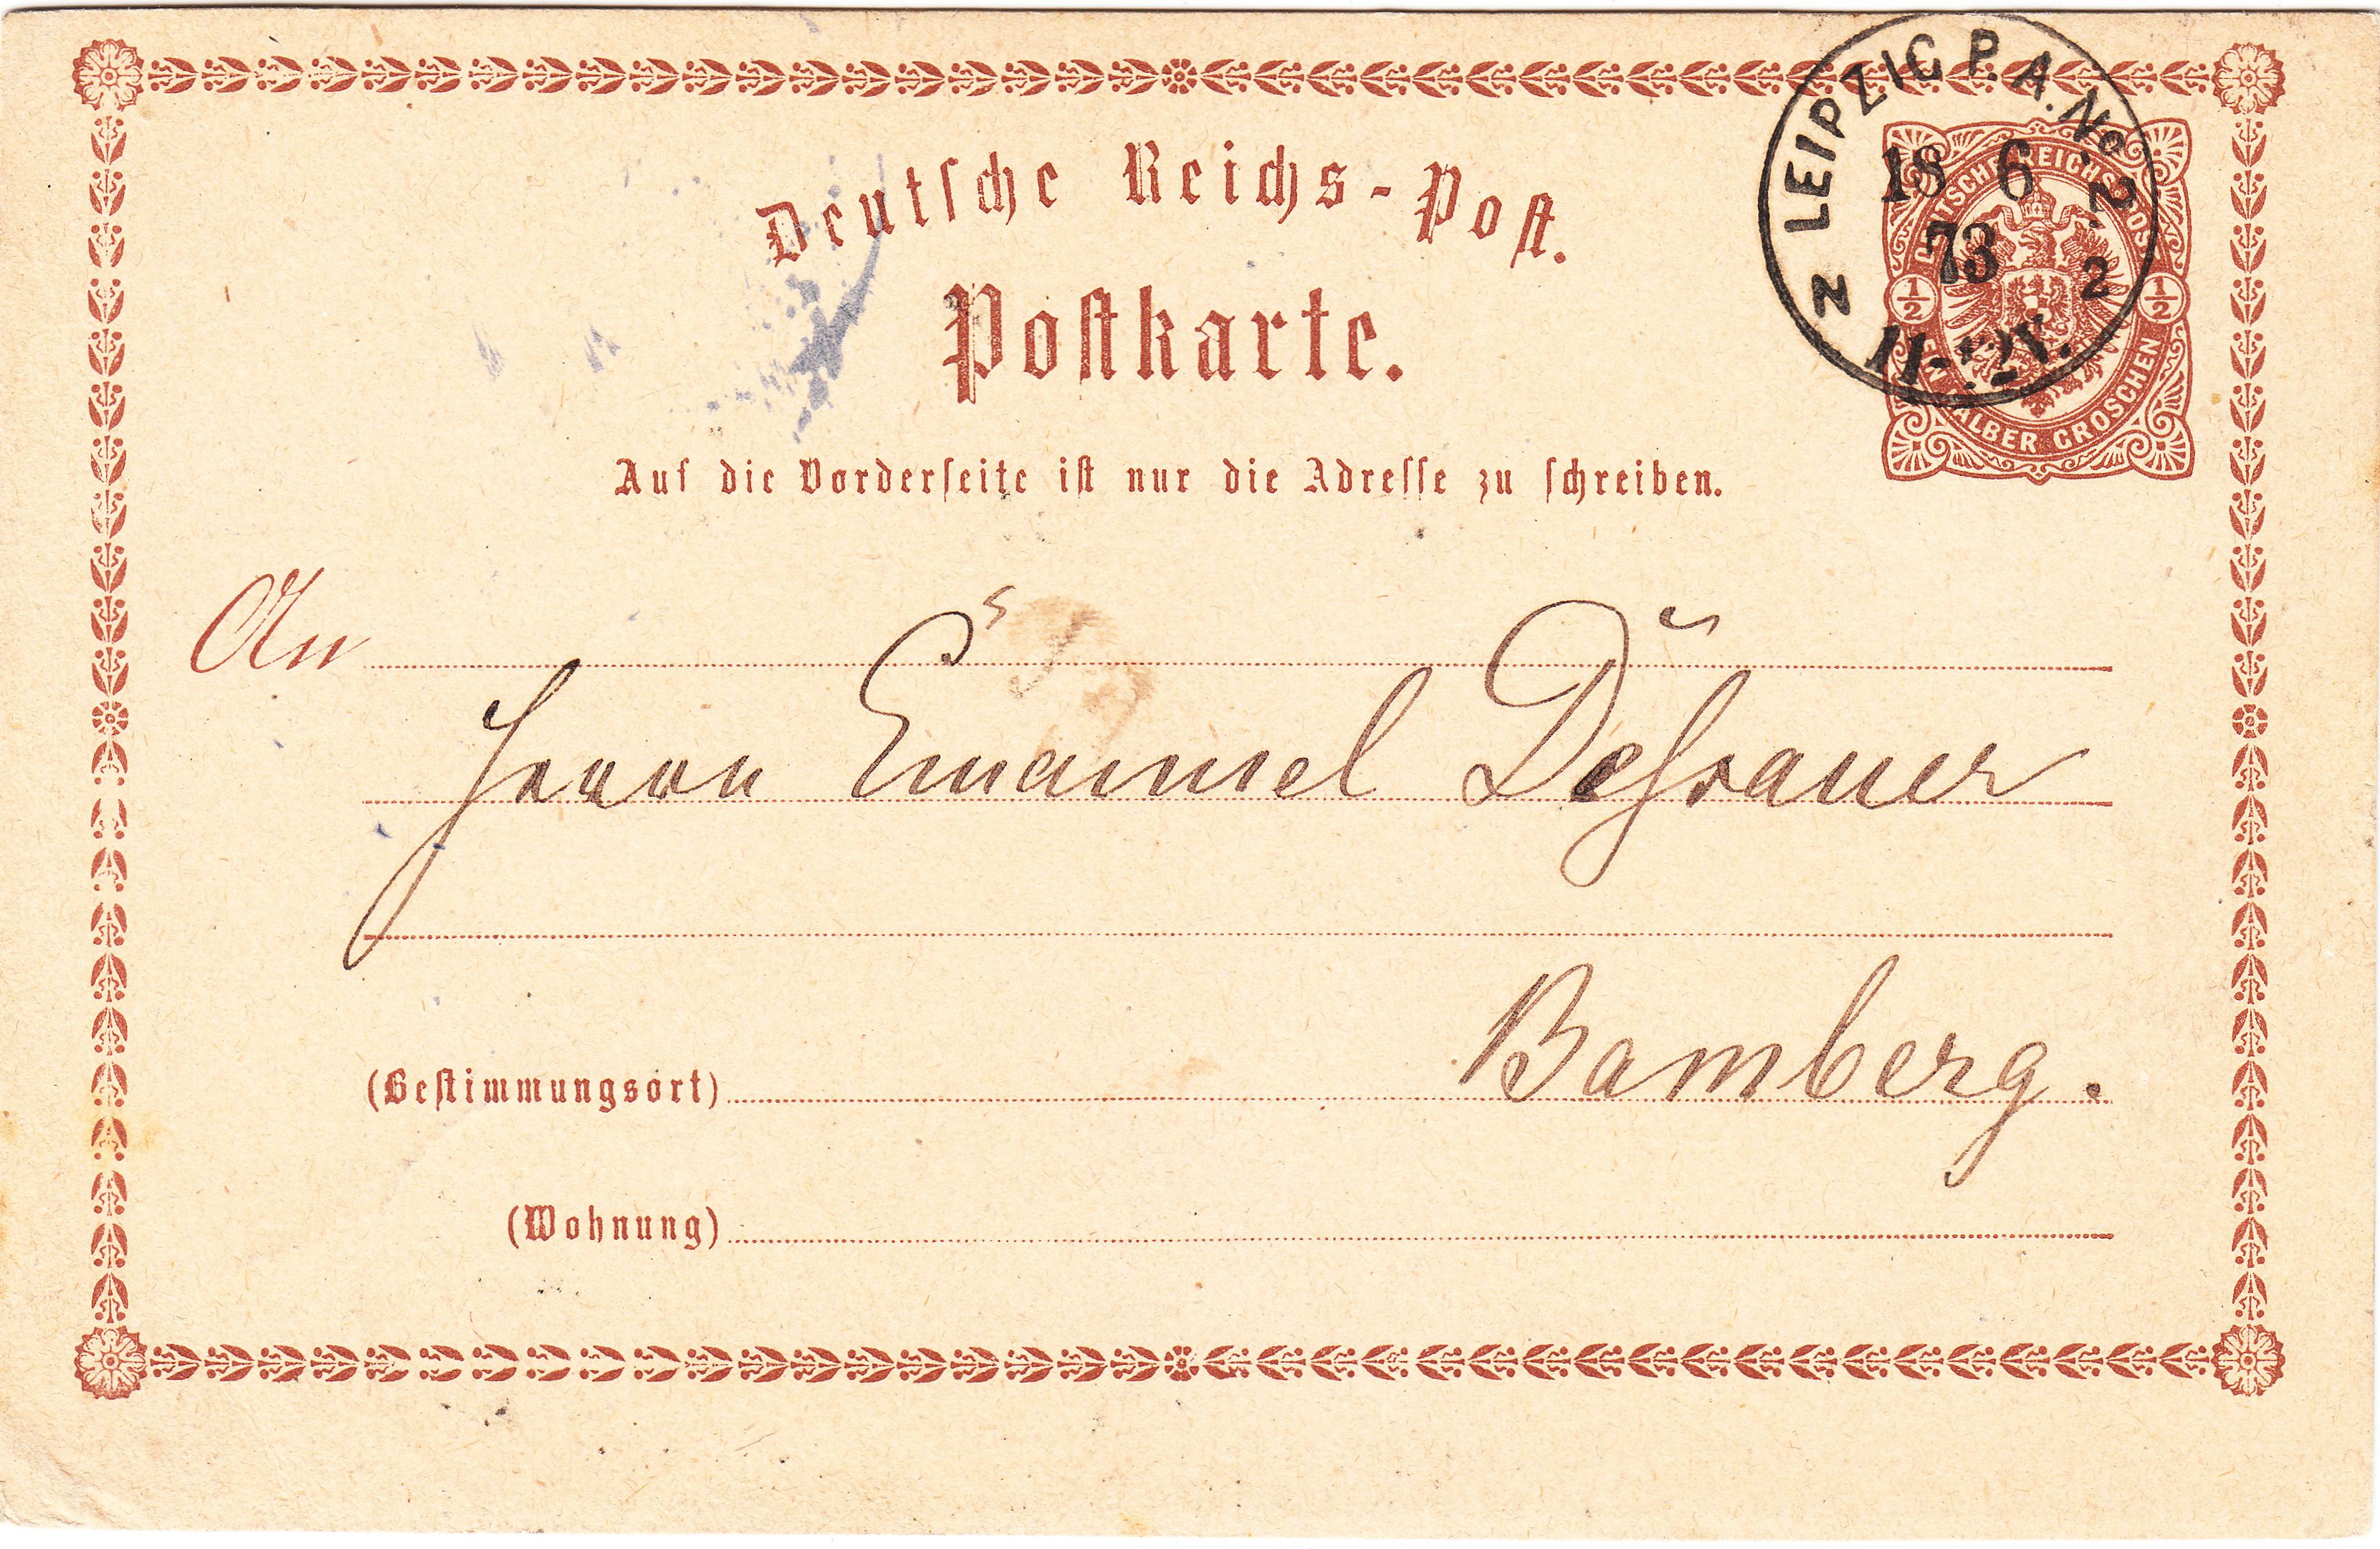 Deutsche Reichs-Post.
Postkarte.
Auf die Vorderseite ist nur die Adresse zu schreiben.
LEIPZIG P. A. No 2.
18 6
73 2
11-12 V.
N
DEUTSCHE REICHS-POST
½ ½
EIN HALBER GROSCHEN
An
Herrn Emanuel Dessauer
Bamberg.
(Bestimmungsort)
(Wohnung)